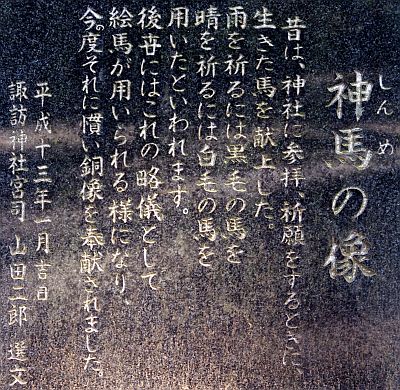 しんめ
神馬の像
昔は、神社に参拝、祈願をするときに、
生きた馬を献上した。
雨を祈るには黒毛の馬を
晴を祈るには白毛の馬を
用いたといわれます。
後世にはこれの略儀として
絵馬が用いられる様になり、
今度それに慣い銅像を奉献されました。
平成十三年一月吉日
諏訪神社宮司 山田二郎 選文